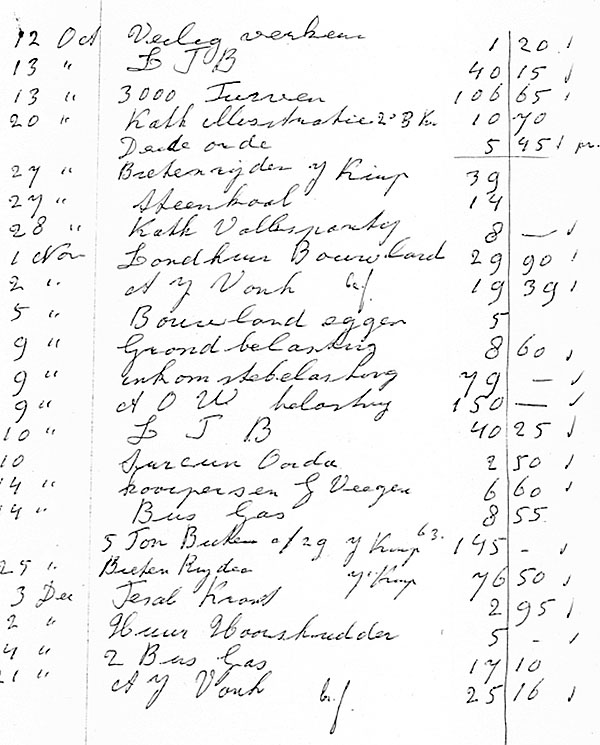 12 Oct Veilig verkeer 1 20
13 " L T B 40 15
13 " 3000 Turven 106 65
20 " Kath illustratie 2e 3 Kw 10 70
Dede orde 5 45
27 " Bietenrijden y Kamp 39
27 " Steenkool 14
28 " Kath Volkspartij 8 —
1 Nov Londhuur Bouwland 29 90
2 " A y Vonk 19 39
5 " Bouwland eggen 5
9 " Grondbelasting 8 60
9 " inkomstebelasting 79 —
9 " A O W belasting 150 —
10 " L T B 40 25
10 Orda 2 50
14 " & Veegen 6 60
14 " Bus Gas 8 55
5 Ton Bieten a/29 y Kamp 63. 145 -
25 " Bieten Rijden y Kamp 76 50
3 Dec Krant 2 95
2 " Huur 5 -
4 " 2 Bus Gas 17 10
21 " A y Vonk 25 16